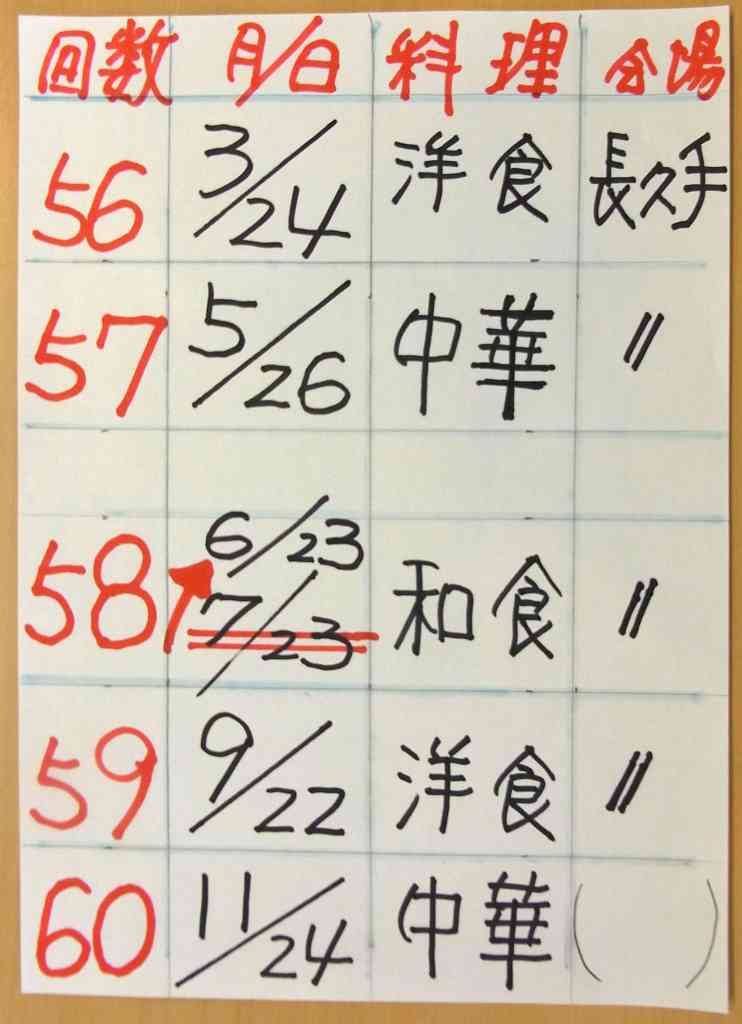 回数 月/日 料理 会場
56 3/24 洋食 長久手
57 5/26 中華 〃
6/23
58 7/23 和食 〃
59 9/22 洋食 〃
60 11/24 中華 ( )